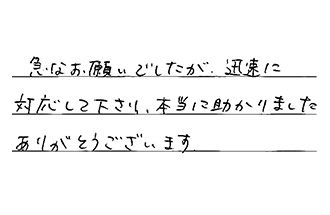 急なお願いでしたが、迅速に
対応して下さり、本当に助かりました
ありがとうございます